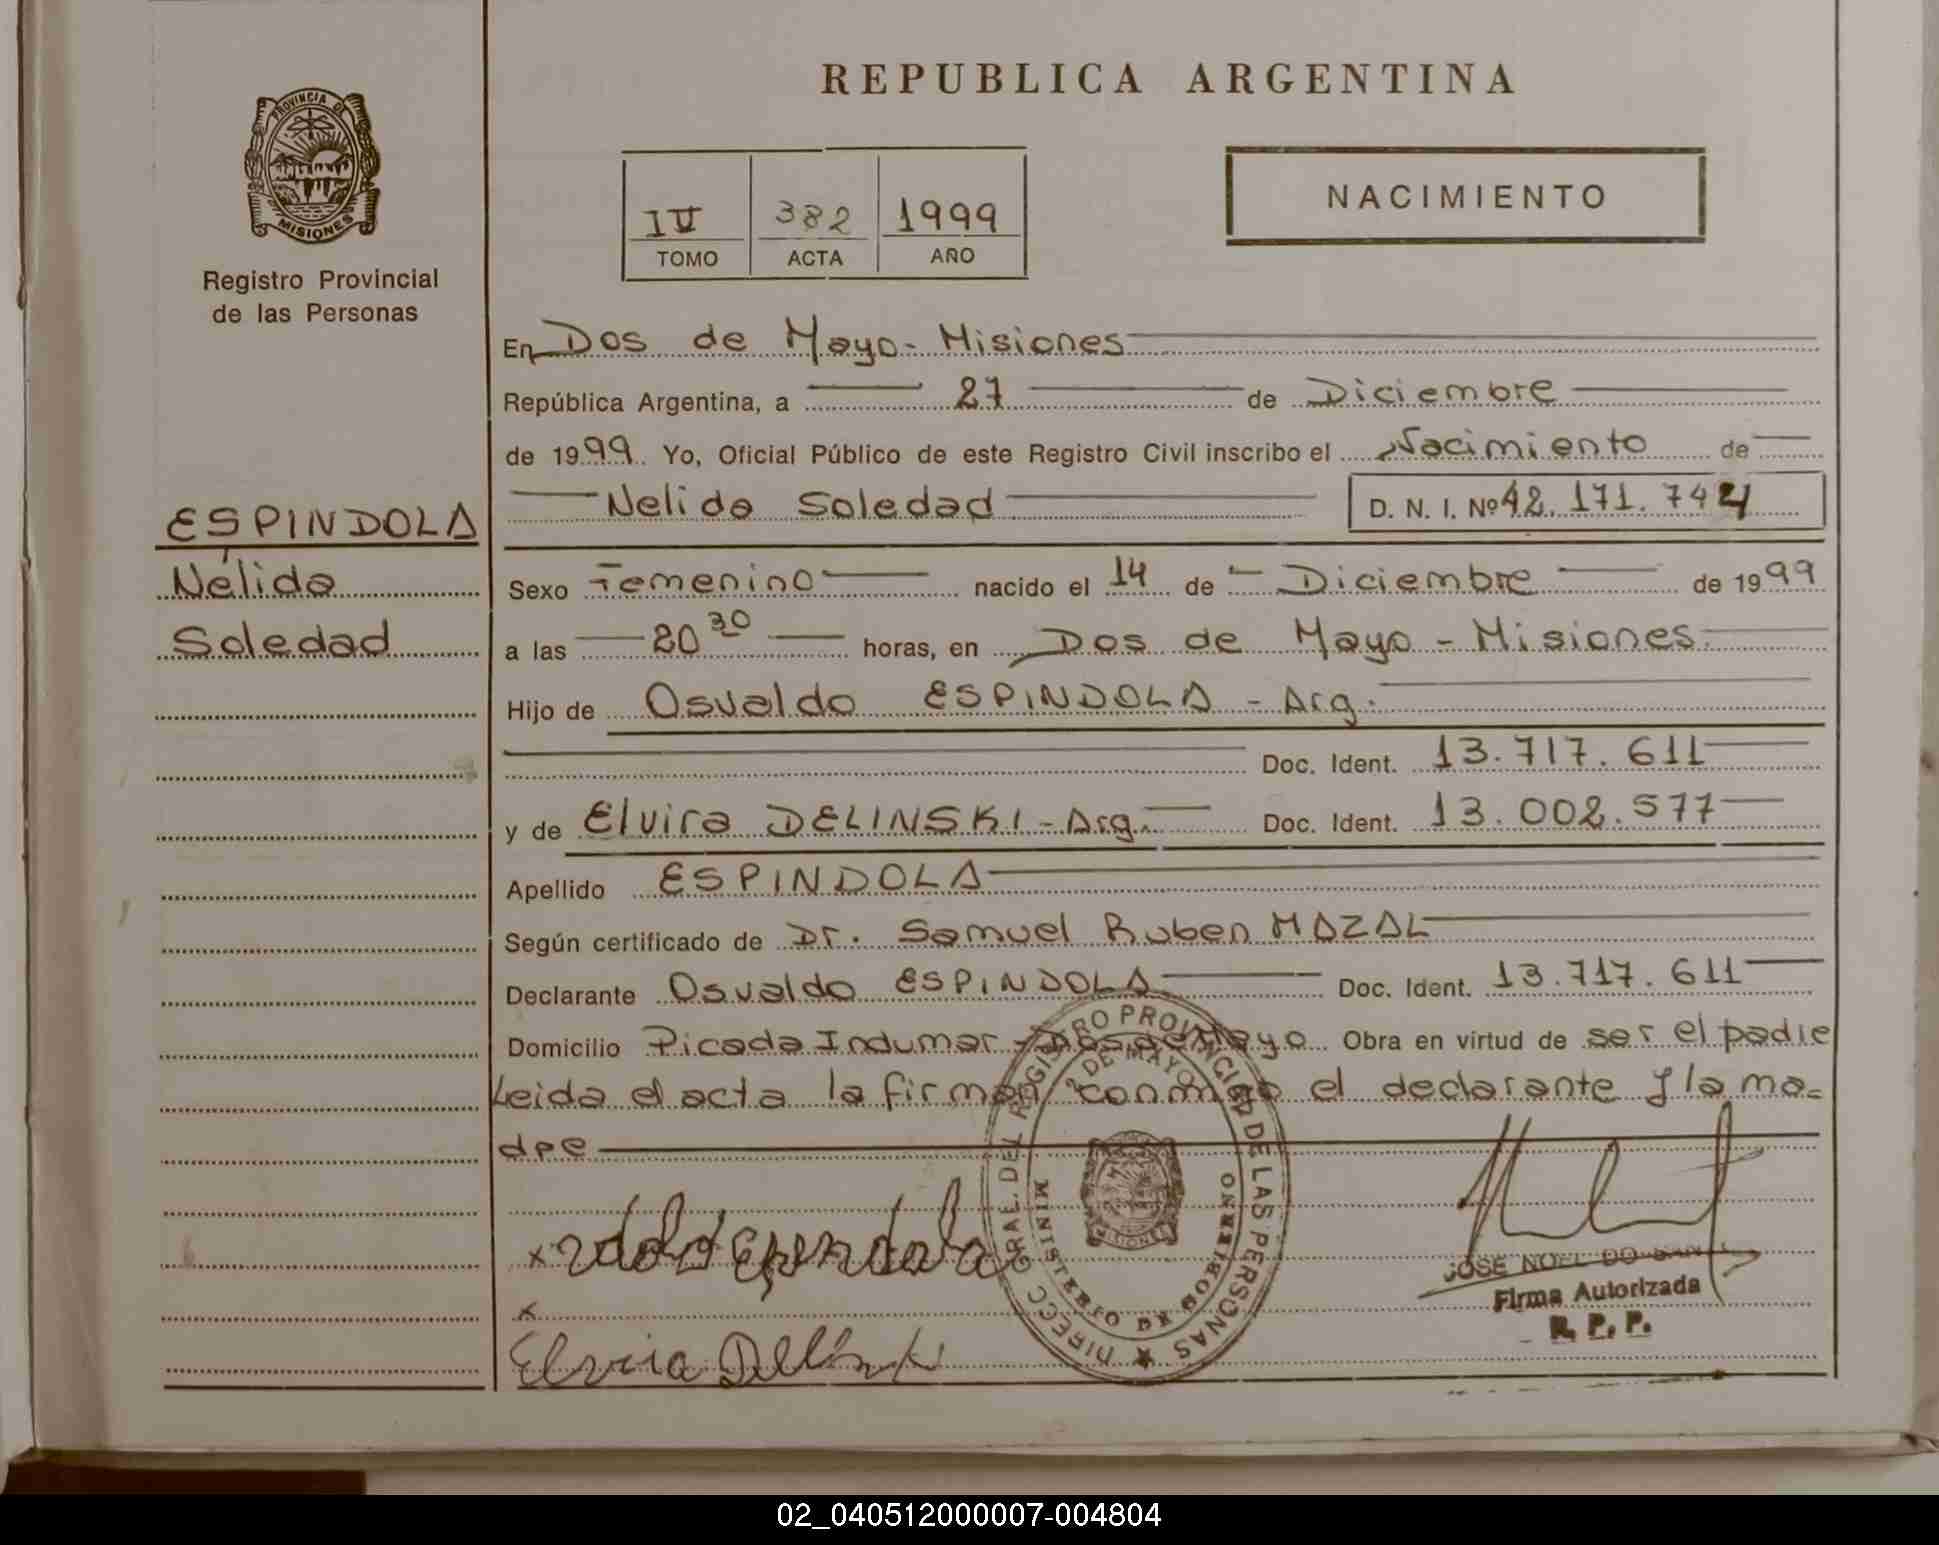 REPUBLICA ARGENTINA
PROVINCIA DE
MISIONES
Registro Provincial
de las Personas
IV 382 1999
TOMO ACTA AÑO
NACIMIENTO
ESPINDOLA
Nélida
Soledad
En Dos de Mayo - Misiones
República Argentina, a 27 de Diciembre
de 1999 Yo, Oficial Público de este Registro Civil inscribo el Nacimiento de
Nelida Soledad D. N. I. Nº 42.171.744
Sexo Femenino nacido el 14 de Diciembre de 1999
a las 20 30 horas, en Dos de Mayo - Misiones
Hijo de Osvaldo ESPINDOLA - Arg.
Doc. Ident. 13.717.611
y de Elvira DELINSKI - Arg. Doc. Ident. 13.002.577
Apellido ESPINDOLA
Según certificado de Dr. Samuel Ruben MAZAL
Declarante Osvaldo ESPINDOLA Doc. Ident. 13.717.611
Domicilio Picada Indumar - Dos de Mayo Obra en virtud de ser el padre
Leida el acta la firman conmigo el declarante y la ma-
dre
DIREC GRAL. DEL REGISTRO PROVINCIAL DE LAS PERSONAS
2 DE MAYO
MINISTERIO DE GOBIERNO
MISIONES
x
x
Elvira Delinski
JOSE NOEL DO
Firma Autorizada
R. P. P.
02_040512000007-004804